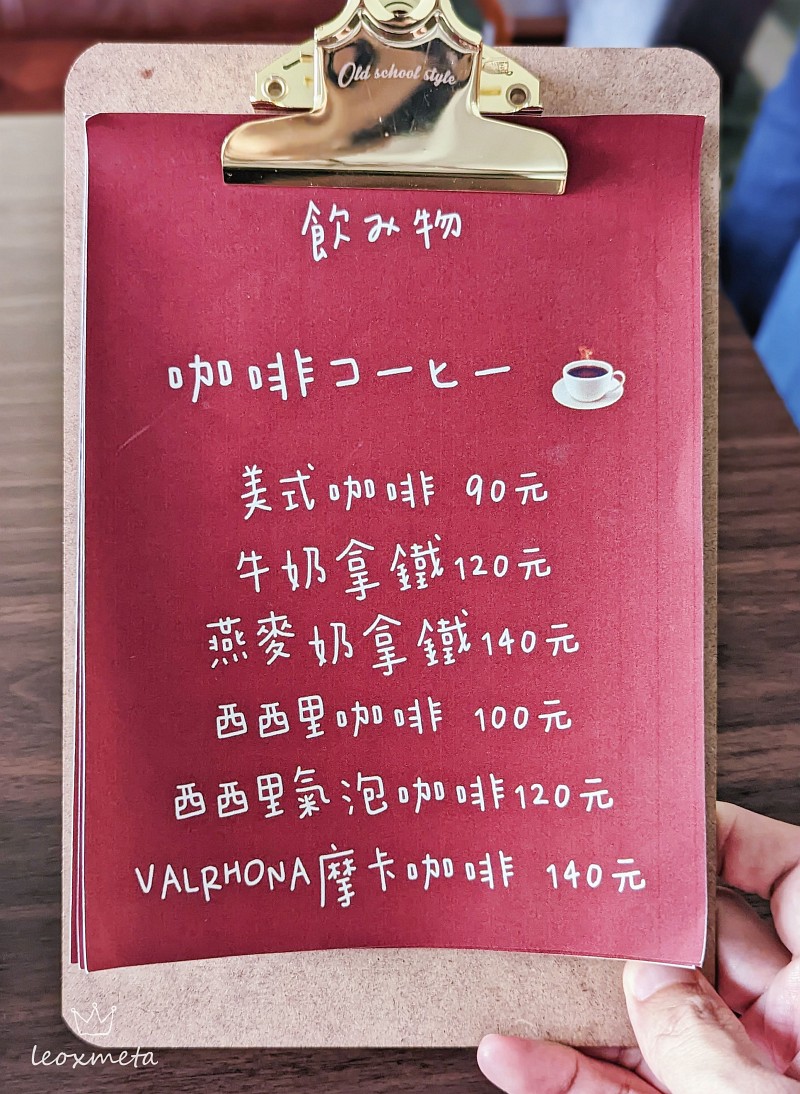 Old school style
飲み物
咖啡コーヒー
美式咖啡 90元
牛奶拿鐵120元
燕麥奶拿鐵140元
西西里咖啡 100元
西西里氣泡咖啡120元
VALRHONA摩卡咖啡 140元
leoxmeta